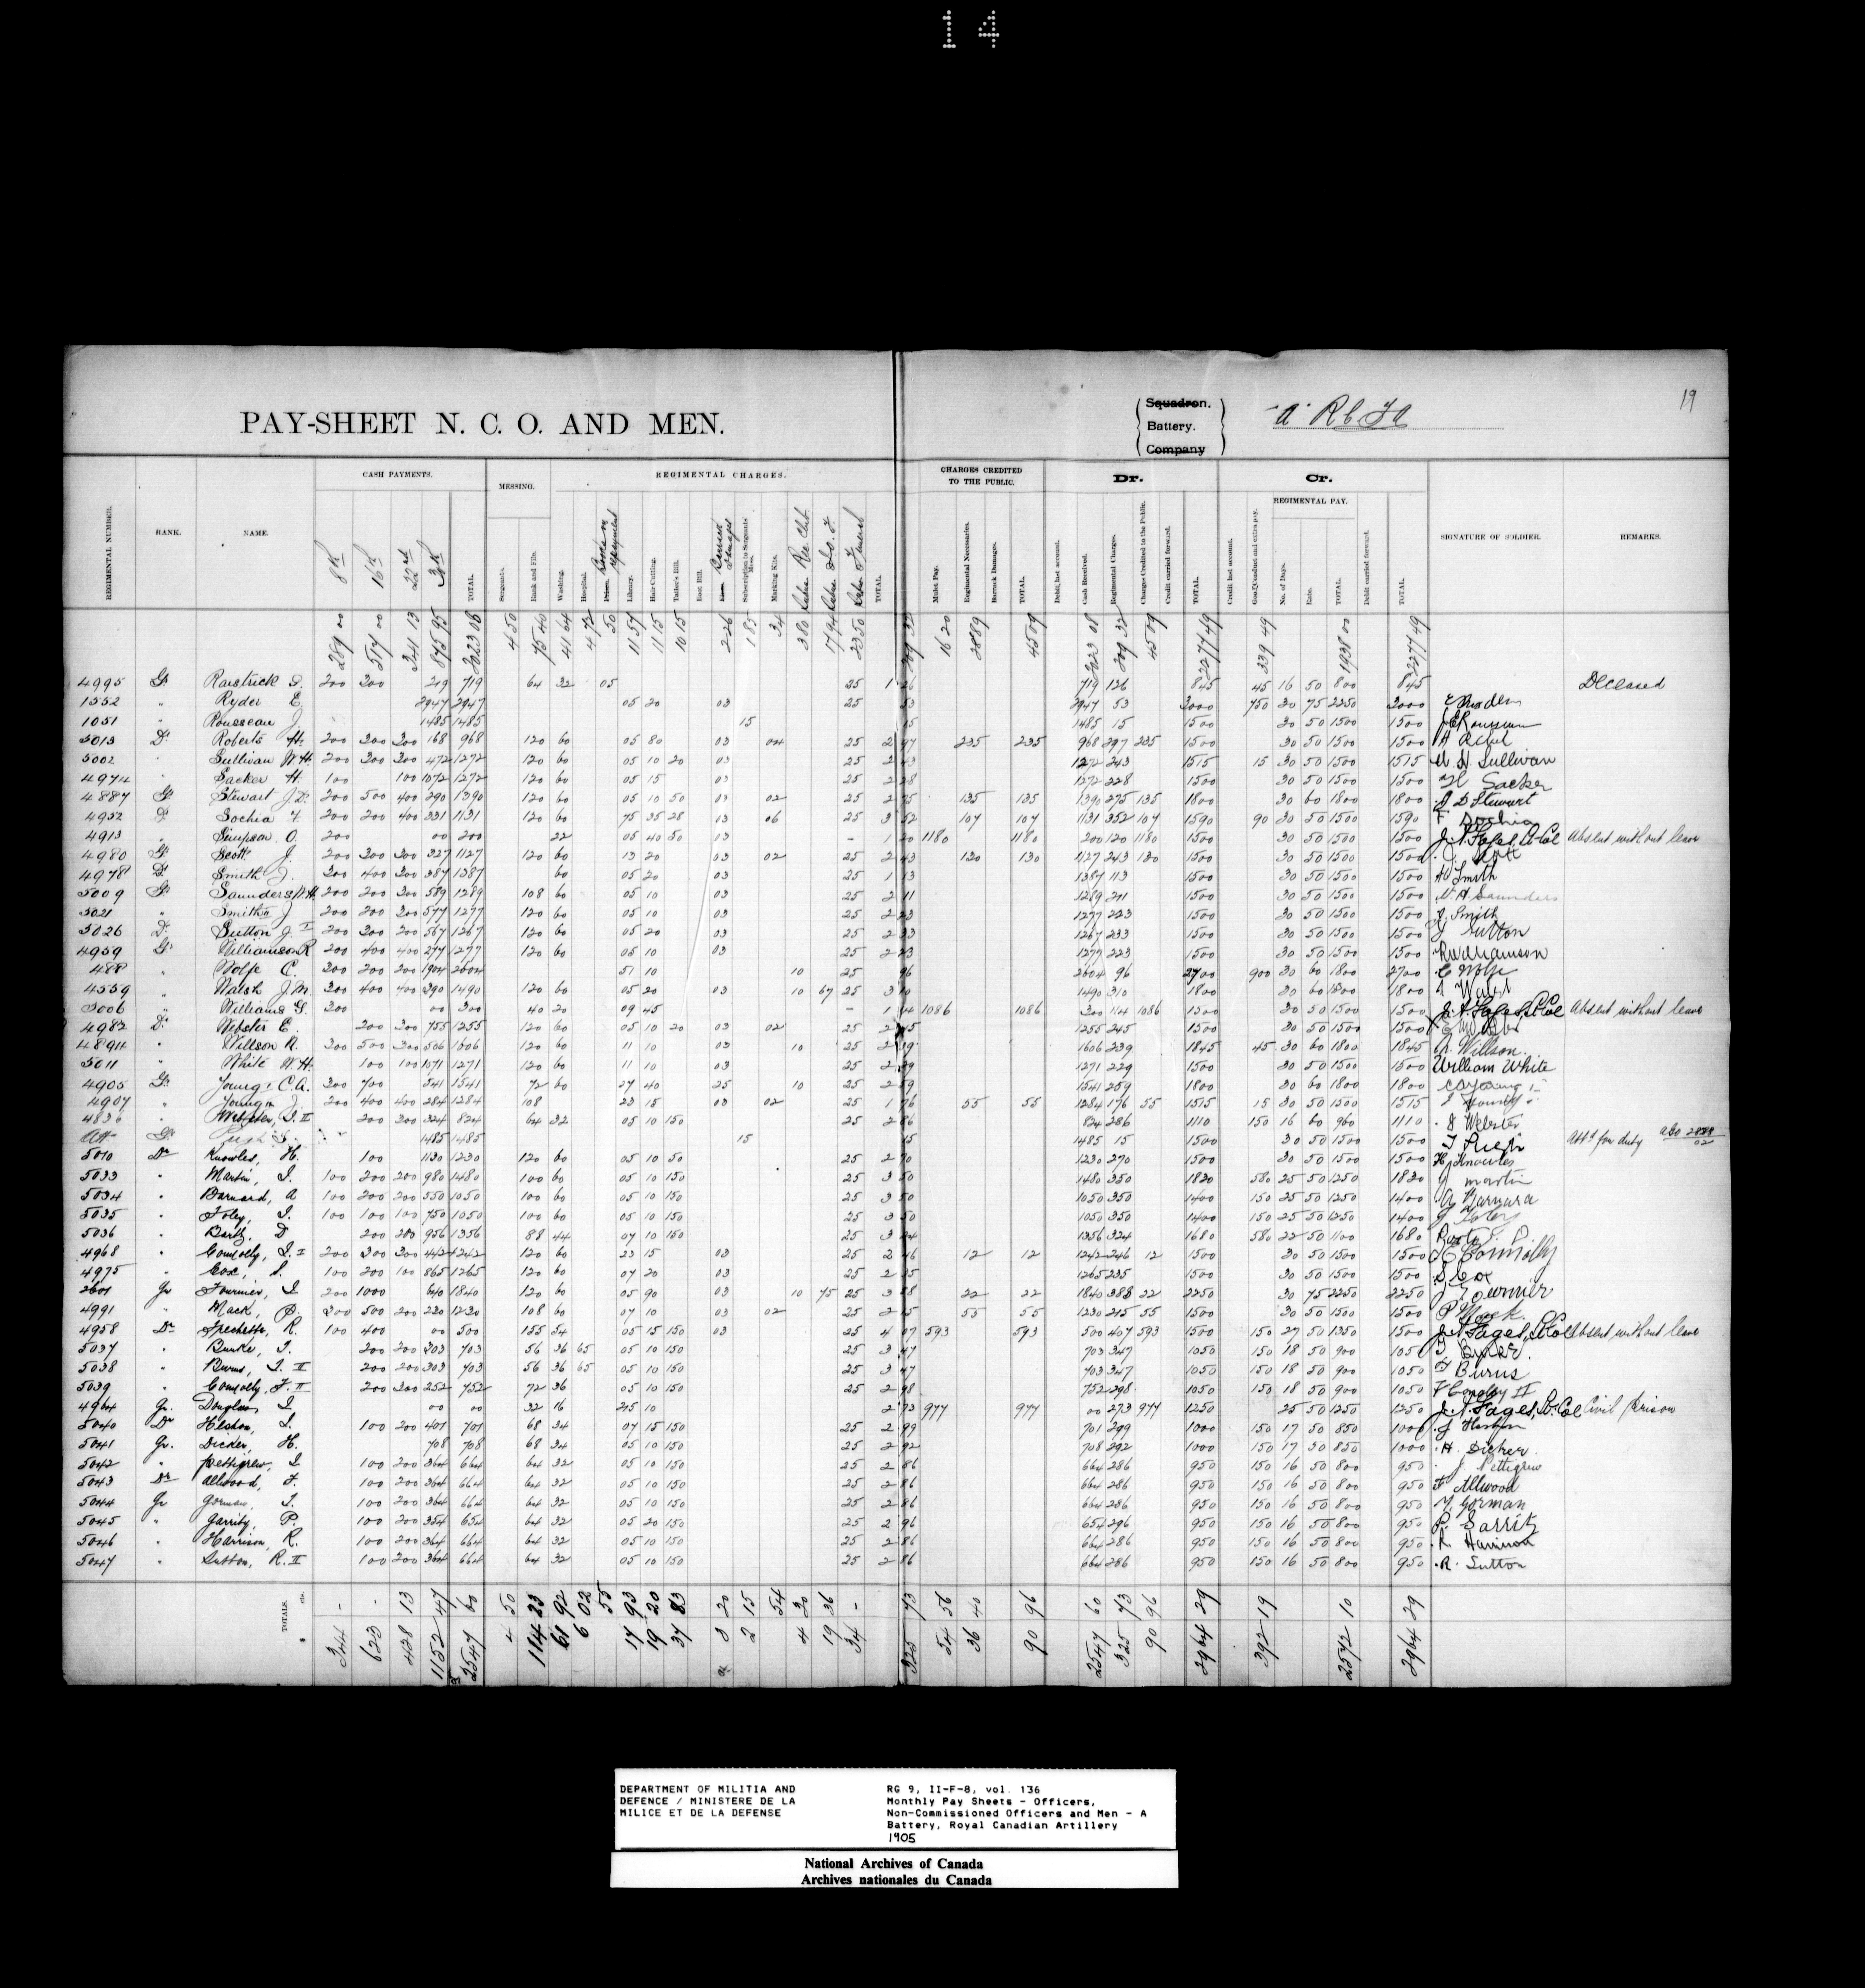 14
19
PAY-SHEET N. C. O. AND MEN.
Squadron.
Battery.
Company
"A" R C F A
REGIMENTAL NUMBER. RANK. NAME. CASH PAYMENTS. MESSING. REGIMENTAL CHARGES. CHARGES CREDITED TO THE PUBLIC. Dr. Cr. SIGNATURE OF SOLDIER. REMARKS.
REGIMENTAL PAY.
8th 16th 22nd 30th TOTAL. Sergeants. Rank and File. Washing. Hospital. Library. Hair Cutting. Tailor's Bill. Boot Bill. Barrack Damages Subscription to Sergeants' Mess. Marking Kits. Rec. Club. TOTAL. Mulct Pay. Regimental Necessaries. Barrack Damages. TOTAL. Debit, last account. Cash Received. Regimental Charges. Charges Credited to the Public. Credit carried forward. TOTAL. Credit last account. Good Conduct and extra pay. No. of Days. Rate. TOTAL. Debit carried forward. TOTAL.
289 00 514 00 341 13 875 95 2023 08 4 50 75 40 41 64 4 72 50 11 54 11 15 10 15 2 26 1 85 34 3 80 17 94 23 50 209 32 16 20 28 89 45 09 2023 08 209 32 45 09 2277 49 339 49 1938 00 2277 49
4995 Gr Rastrick 200 300 219 719 64 32 05 25 1 26 719 126 845 45 16 50 800 845 Deceased
1552 " Ryder E. 2947 2947 05 20 03 25 53 2947 53 3000 750 30 75 2250 3000
1051 " Rousseau J. 1485 1485 15 15 1485 15 1500 30 50 1500 1500
5013 Dr Roberts H. 200 300 300 168 968 120 60 05 80 03 04 25 2 97 235 235 968 297 235 1500 30 50 1500 1500
5002 " Sullivan W.H. 200 300 300 472 1272 120 60 05 10 20 03 25 2 43 1272 243 1515 15 30 50 1500 1515 Sullivan
4974 " Sacker H. 100 100 1072 1272 120 60 05 15 03 25 2 28 1272 228 1500 30 50 1500 1500 H Sacker
4887 Gr Stewart J.D. 200 500 400 290 1390 120 60 05 10 50 03 02 25 2 75 135 135 1390 275 135 1800 30 60 1800 1800 J D Stewart
4952 Dr Sochia F. 200 200 400 331 1131 120 60 75 35 28 13 06 25 3 52 107 107 1131 352 107 1590 90 30 50 1500 1590 F Sochia
4913 " Simpson O. 200 00 200 22 05 40 50 03 - 1 20 1180 1180 200 120 1180 1500 30 50 1500 1500 J. A. Fages, Lt. Col Absent without leave
4980 Gr Scott J. 200 300 300 327 1127 120 60 13 20 03 02 25 2 43 130 130 1127 243 130 1500 30 50 1500 1500 J. Scott
4978 Dr Smith J. 300 400 300 387 1387 60 05 20 03 25 1 13 1387 113 1500 30 50 1500 1500 Smith
5009 Gr Saunders W.H. 200 200 300 589 1289 108 60 05 10 03 25 2 11 1289 211 1500 30 50 1500 1500 Saunders
5021 " Smith J 200 200 300 577 1277 120 60 05 10 03 25 2 23 1277 223 1500 30 50 1500 1500 J. Smith
5026 Dr Sutton J. I 200 300 200 567 1267 120 60 05 20 03 25 2 33 1267 233 1500 30 50 1500 1500 J Sutton
4959 Gr Williamson R 200 400 400 277 1277 120 60 05 10 03 25 2 23 1277 223 1500 30 50 1500 1500 R Williamson
488 " Wolfe C. 300 200 200 1904 2604 51 10 10 25 96 2604 96 2700 900 30 60 1800 2700 C Wolfe
4559 " Walsh J.M. 300 400 400 390 1490 120 60 05 20 03 10 67 25 3 10 1490 310 1800 30 60 1800 1800 Walsh
5006 " Williams G. 300 00 300 40 20 09 45 - 1 14 1086 1086 300 114 1086 1500 30 50 1500 1500 J. A. Fages, Lt Col Absent without leave
4982 Dr Webster E. 200 300 755 1255 120 60 05 10 20 03 02 25 2 45 1255 245 1500 30 50 1500 1500
4894 " Willson A. 300 500 300 506 1606 120 60 11 10 03 10 25 2 39 1606 239 1845 45 30 60 1800 1845 A. Willson.
5011 " White W.H. 100 100 1071 1271 120 60 11 10 03 25 2 29 1271 229 1500 30 50 1500 1500 William White
4905 Gr Young C.A. 300 700 541 1541 72 60 27 40 25 10 25 2 59 1541 259 1800 30 60 1800 1800 C A Young
4907 " Young J. 200 400 400 284 1284 108 23 15 03 02 25 1 76 55 55 1284 176 55 1515 15 30 50 1500 1515
4836 " Webster, J. II 200 300 324 824 64 32 05 10 150 25 2 86 824 286 1110 150 16 60 960 1110 J Webster
Att Gr Pugh 1485 1485 15 15 1485 15 1500 30 50 1500 1500 Pugh Att'd for duty
5010 Dr Knowles, H. 100 1130 1230 120 60 05 10 50 25 2 70 1230 270 1500 30 50 1500 1500 H Knowles
5033 " Martin, J. 100 200 200 980 1480 100 60 05 10 150 25 3 50 1480 350 1830 580 25 50 1250 1830 J martin
5034 " Barnard, A 100 200 200 550 1050 100 60 05 10 150 25 3 50 1050 350 1400 150 25 50 1250 1400 A Barnard
5035 " Foley, J. 100 100 100 750 1050 100 60 05 10 150 25 3 50 1050 350 1400 150 25 50 1250 1400 J Foley
5036 " Barty, D 200 200 956 1356 88 44 07 10 150 25 3 24 1356 324 1680 580 22 50 1100 1680
4968 " Connolly, J. I 200 300 300 442 1242 120 60 23 15 03 25 2 46 12 12 1242 246 12 1500 30 50 1500 1500 Connolly
4975 " Cox, S. 100 200 100 865 1265 120 60 07 20 03 25 2 35 1265 235 1500 30 50 1500 1500 S. Cox
2601 Gr Fournier, J 200 1000 640 1840 120 60 05 90 03 10 75 25 3 88 22 22 1840 388 22 2250 30 75 2250 2250 J Fournier
4991 " Mack, P. 300 500 200 230 1230 108 60 07 10 03 02 25 2 15 55 55 1230 215 55 1500 30 50 1500 1500 P Mack.
4958 Dr Frechette, R. 100 400 00 500 155 54 05 15 150 03 25 4 07 593 593 500 407 593 1500 150 27 50 1350 1500 J. A. Fages, Lt Col Absent without leave
5037 " Burke, J. 200 200 303 703 56 36 65 05 10 150 25 3 47 703 347 1050 150 18 50 900 1050
5038 " Burns, J. II 200 200 303 703 56 36 65 05 10 150 25 3 47 703 347 1050 150 18 50 900 1050 Burns
5039 " Connolly, F. II 200 300 252 752 72 36 05 10 150 25 2 98 752 298 1050 150 18 50 900 1050
4964 Gr. Douglas, J 00 00 32 16 215 10 2 73 977 977 00 273 977 1250 25 50 1250 1250 J. A. Fages, Lt. Col Civil Prison
5040 Dr Heshon, J. 100 200 401 701 68 34 07 15 150 25 2 99 701 299 1000 150 17 50 850 1000
5041 Gr. Dicker, H. 708 708 68 34 05 10 150 25 2 92 708 292 1000 150 17 50 850 1000 H. Dicker.
5042 " Pettigrew, J. 100 200 364 664 64 32 05 10 150 25 2 86 664 286 950 150 16 50 800 950 J. Pettigrew
5043 Dr Allwood, F. 100 200 364 664 64 32 05 10 150 25 2 86 664 286 950 150 16 50 800 950 F Allwood
5044 Gr Gorman, J. 100 200 364 664 64 32 05 10 150 25 2 86 664 286 950 150 16 50 800 950 Gorman
5045 " Garrity, P. 100 200 354 654 64 32 05 20 150 25 2 96 654 296 950 150 16 50 800 950 P. Garrity
5046 " Harrison, R. 100 200 364 664 64 32 05 10 150 25 2 86 664 286 950 150 16 50 800 950 R Harrison
5047 " Sutton, R. II 100 200 364 664 64 32 05 10 150 25 2 86 664 286 950 150 16 50 800 950 R. Sutton
TOTALS. $ cts. 344 - 623 - 428 13 1152 47 2547 60 4 50 114 23 61 92 6 02 55 17 93 19 20 37 83 3 20 2 15 54 4 30 19 36 34 - 325 73 54 56 36 40 90 96 2547 60 325 73 90 96 2964 29 392 19 2572 10 2964 29
DEPARTMENT OF MILITIA AND
DEFENCE / MINISTERE DE LA
MILICE ET DE LA DEFENSE
RG 9, II-F-8, vol. 136
Monthly Pay Sheets - Officers,
Non-Commissioned Officers and Men - A
Battery, Royal Canadian Artillery
1905
National Archives of Canada
Archives nationales du Canada